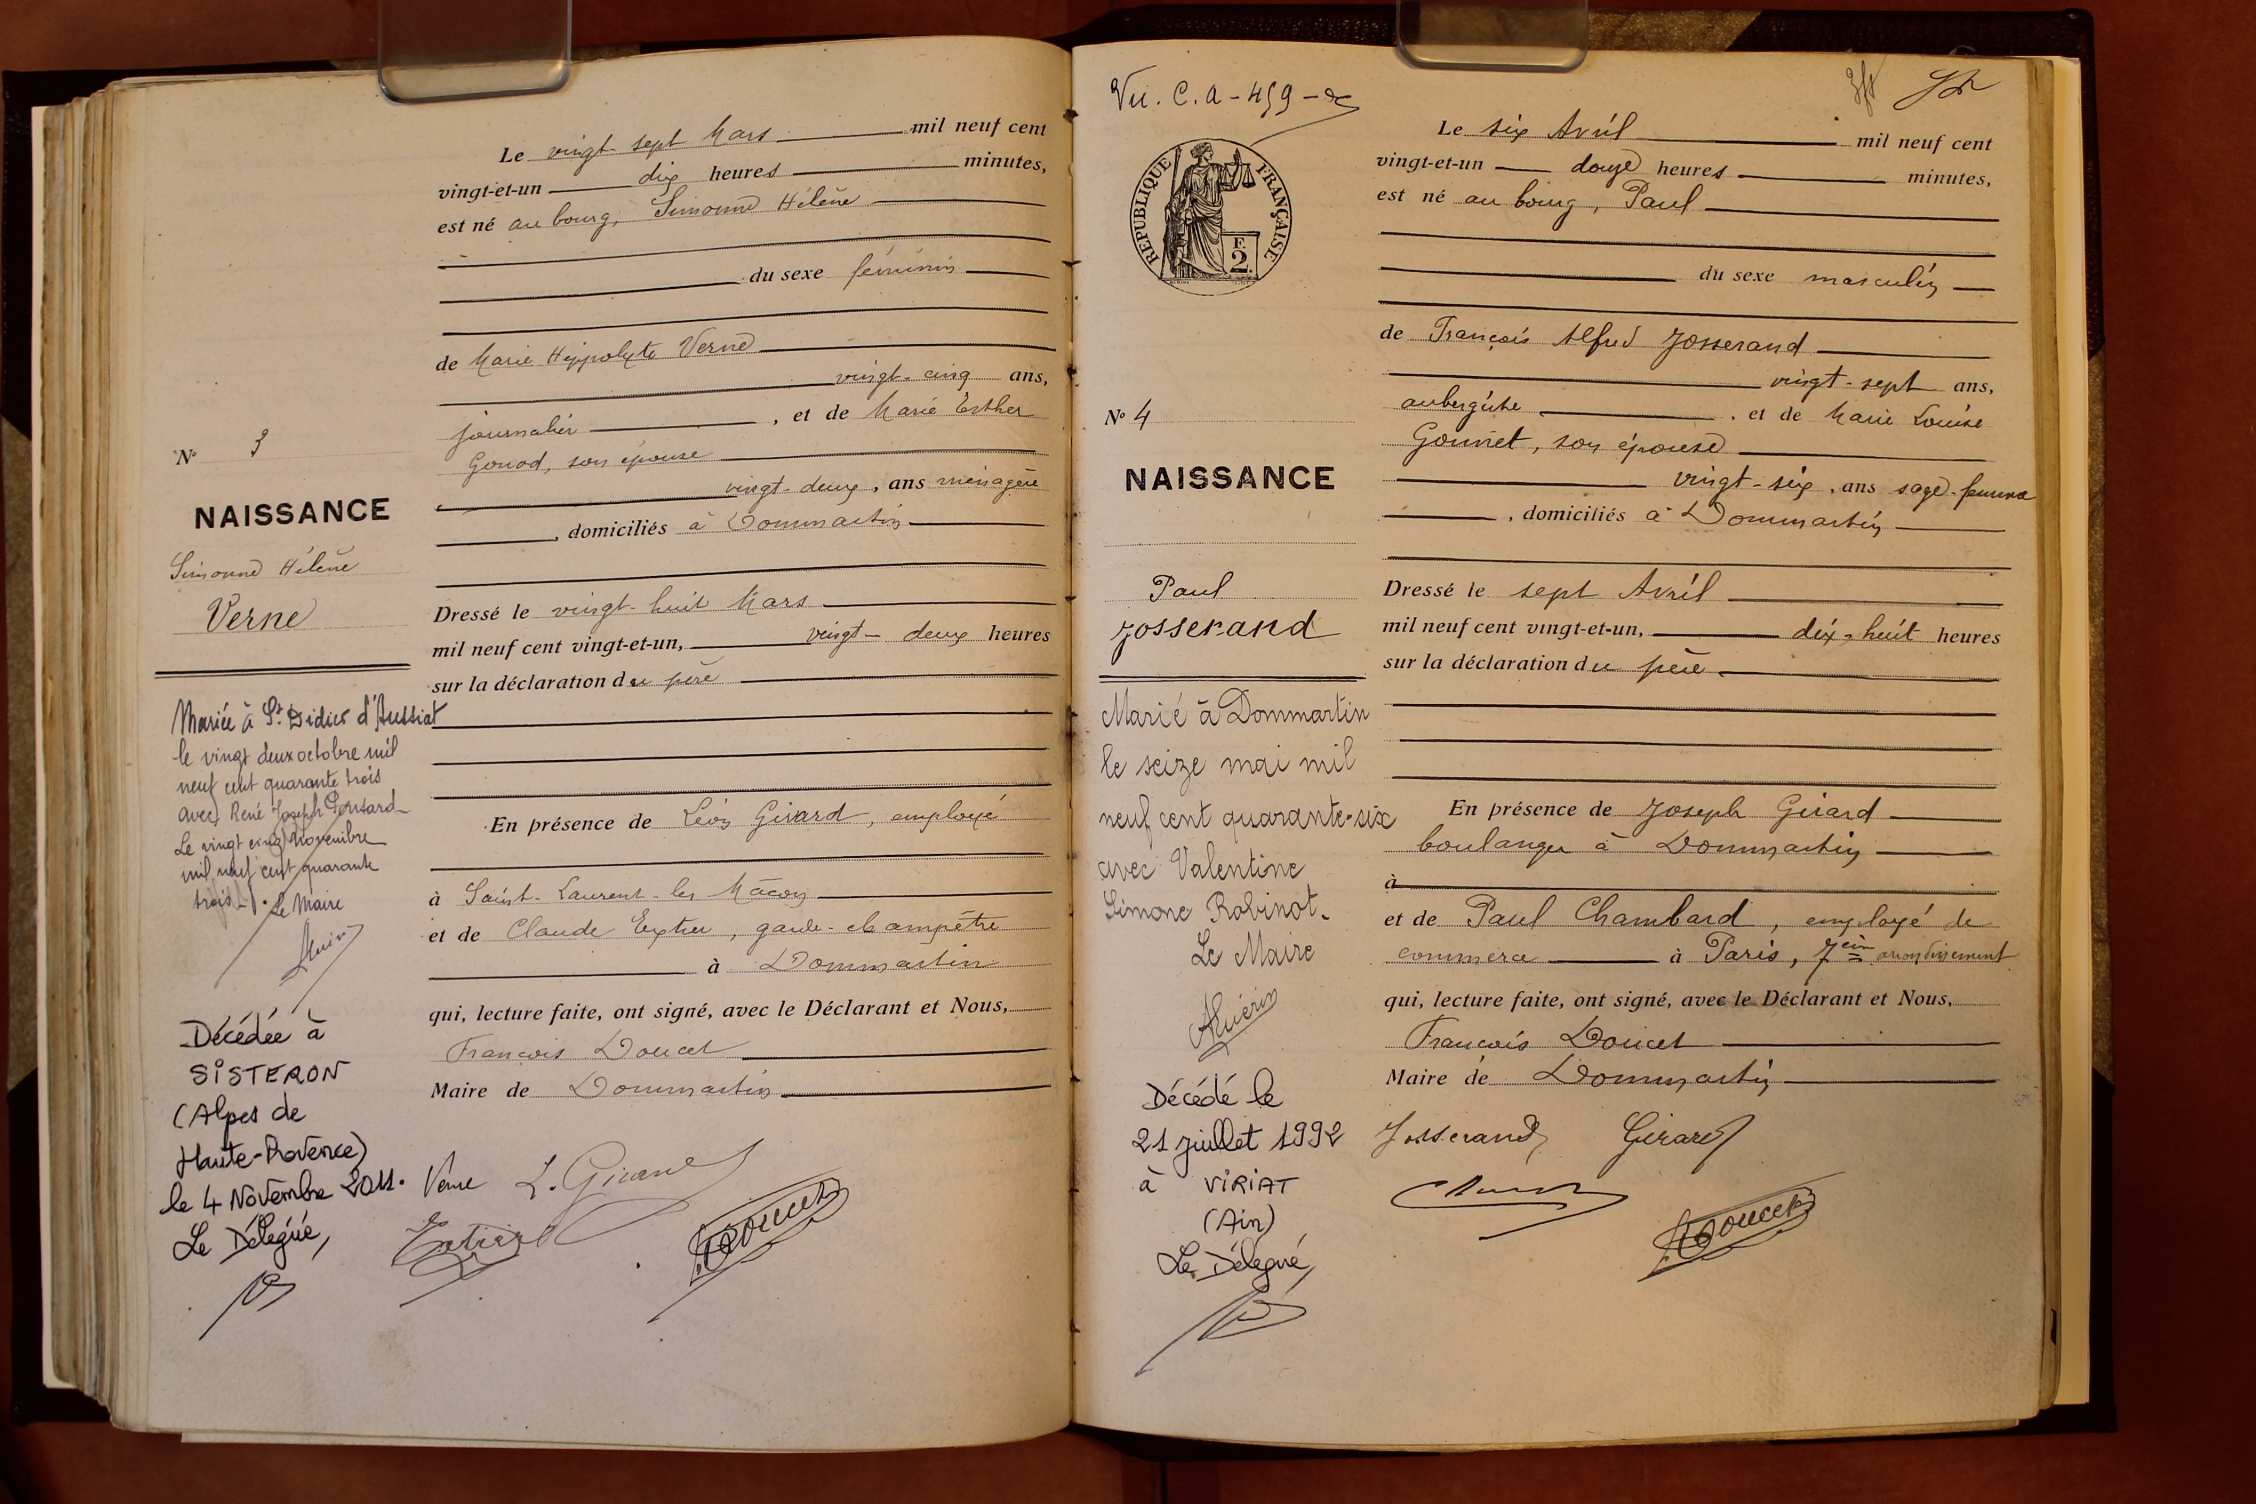 Le vingt-sept Mars mil neuf cent
vingt-et-un dix heures minutes,
est né au bourg, Simonne Hélène
du sexe féminin
de Marie Hippolyte Verne
vingt-cinq ans,
journalier, et de Marie Esther
Gonod, son épouse
vingt-deux, ans ménagère
, domiciliés à Dommartin
Dressé le vingt-huit Mars
mil neuf cent vingt-et-un, vingt-deux heures
sur la déclaration du père
En présence de Léon Girard, employé
à Saint-Laurent-les Mâcon
et de Claude Extier, garde-champêtre
à Dommartin
qui, lecture faite, ont signé, avec le Déclarant et Nous,
François Doucet
Maire de Dommartin
Verne L. Girard
Extier Doucet
N° 3
NAISSANCE
Simonne Hélène
Verne
Mariée à St Didier d'Aussiat
le vingt deux octobre mil
neuf cent quarante trois
avec René Joseph Ponsard
Le vingt cinq Novembre
mil neuf cent quarante
trois. Le Maire
Décédée à
SISTERON
(Alpes de
Haute-Provence)
le 4 Novembre 2011.
Le Délégué,
Vu. C. A - 459 -
RÉPUBLIQUE FRANÇAISE
F.
2
Le six Avril mil neuf cent
vingt-et-un douze heures minutes,
est né au bourg, Paul
du sexe masculin
de François Alfred Josserand
vingt-sept ans,
aubergiste, et de Marie Louise
Gouniet, son épouse
vingt-six, ans sage-femme
, domiciliés à Dommartin
Dressé le sept Avril
mil neuf cent vingt-et-un, dix-huit heures
sur la déclaration du père
En présence de Joseph Girard
boulanger à Dommartin
à
et de Paul Chambard, employé de
commerce à Paris, 7eme arrondissement
qui, lecture faite, ont signé, avec le Déclarant et Nous,
François Doucet
Maire de Dommartin
Josserand Girard
Doucet
N° 4
NAISSANCE
Paul
Josserand
Marié à Dommartin
le seize mai mil
neuf cent quarante-six
avec Valentine
Simone Robinot.
Le Maire
AGuérin
Décédé le
21 juillet 1992
à VIRIAT
(Ain)
Le Délégué,